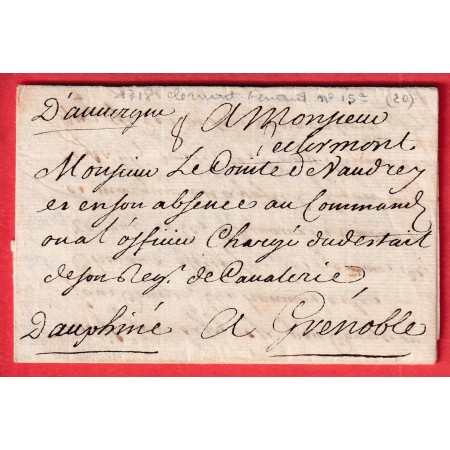 1718 clermont ferrand n° 15a (20)
D'auvergne 8 A Monsieur
declermont
Monsieur Le Comte de Vaudrey
et en son absence au Command
ou a l'officier Chargé du destait
de son Regt. de Cavalerie,
Dauphiné A Grénoble